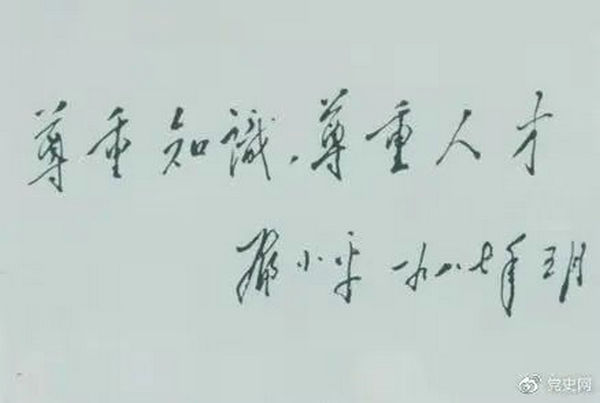 尊重知識、尊重人才
鄧小平 一九八七年五月
党史网